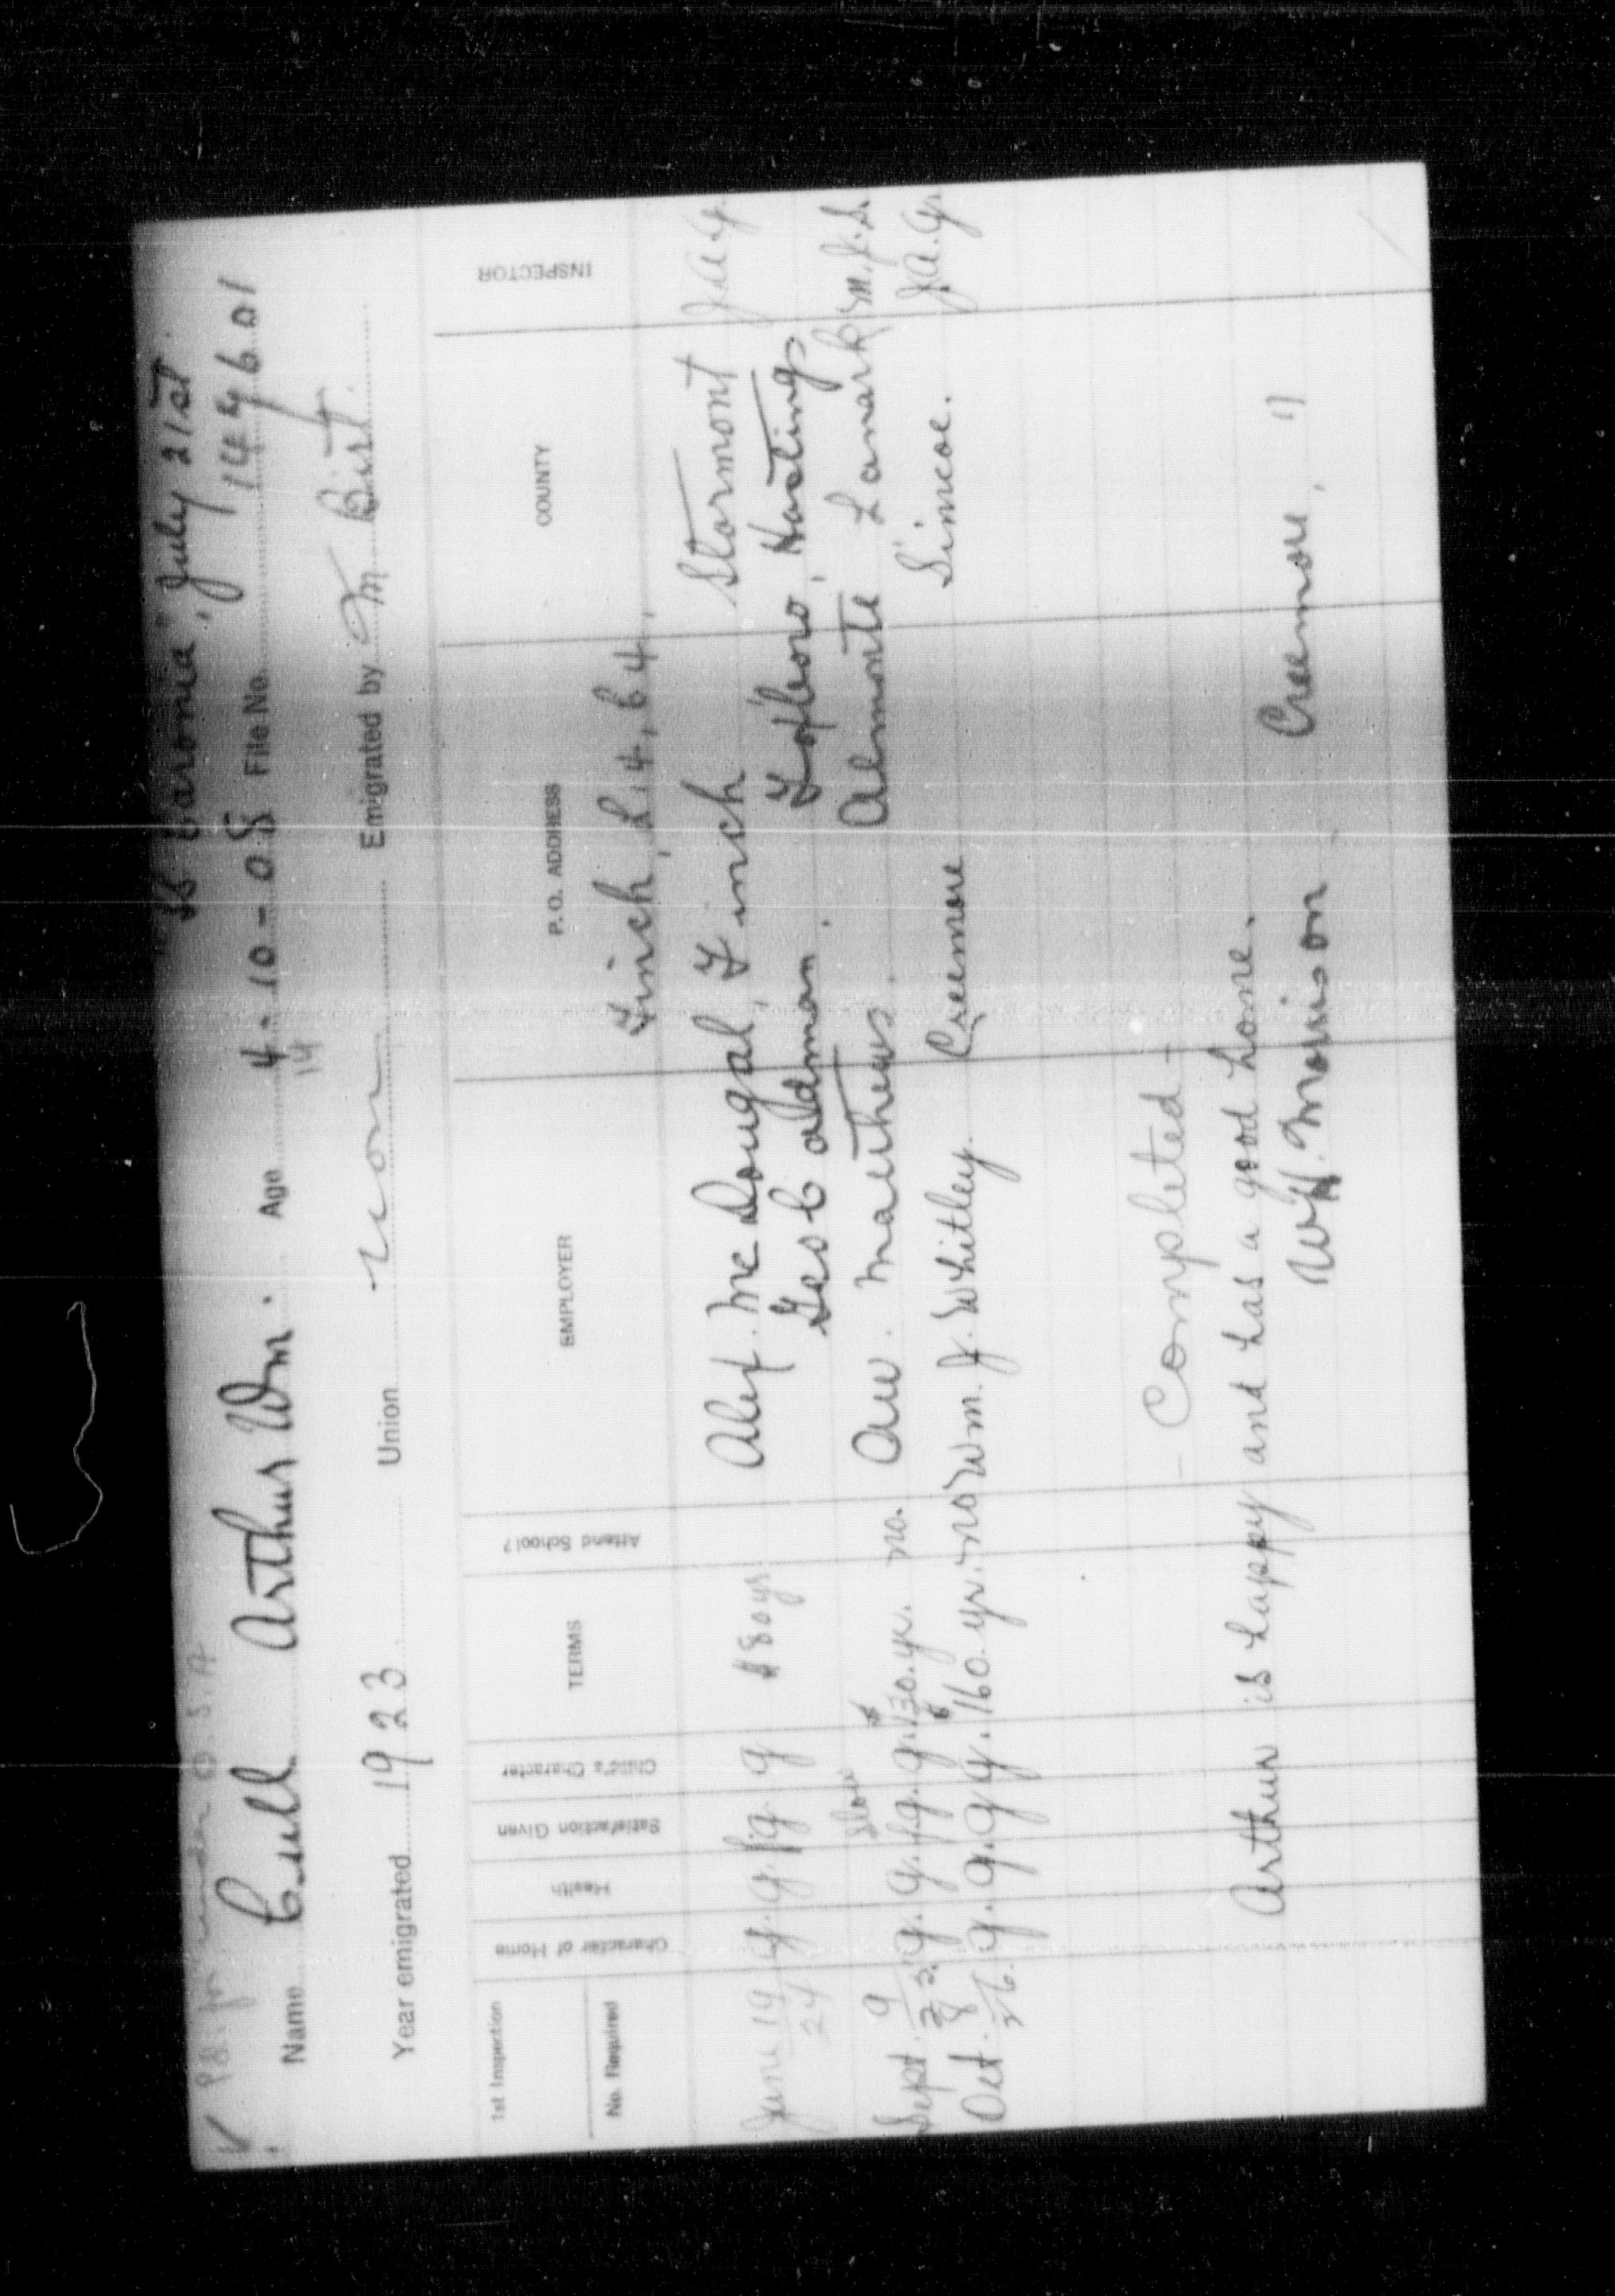 "SS Caronia", July 21st
Name Cull Arthur Wm. Age 4-10-08 File No. 149601
14
Year emigrated 1923 Union non Emigrated by M Birt.
1st Inspection
No. Required
Character of Home
Health
Satisfaction Given
Child's Character
TERMS
Attend School?
EMPLOYER
P. O. ADDRESS
COUNTY
INSPECTOR
Finch, L, 4, C 4,
June 19/24 g. g. fg g $80 yr. Alex. McDougal, Finch Stormont J A G
Geo Cadman. Foxboro, Hastings
Slow
Sept. 9/25. g. g. fg. g. $130. yr. no. Aw. Matthews. Almonte Lanark M. J. S.
Oct. 8/26. g. g. g. g. $160. yr. no Wm. J. Whitley. Creemore Simcoe. J. A. G.
- Completed -
Arthur is happy and has a good home.
W H. Morrison Creemore, "